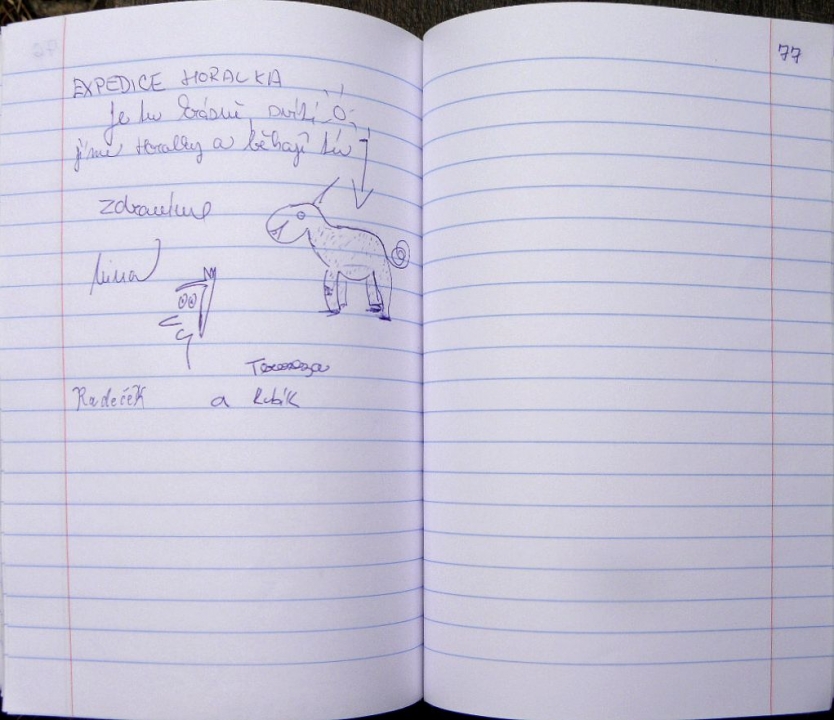 77
EXPEDICE HORALKA
Je tu krásně, svítí
jíme Horalky a běhají tu
zdravíme
Tereza
Radeček a Kubík